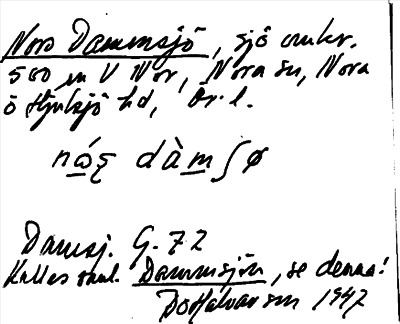 Nors Dammsjö, sjö omkr.
500 m V Nor, Nora sn, Nora
o Hjulsjö hd, Ör. l.
nó̱ʂ dàm̱ʃø
Damsj. G. 72
Kallas saml. Dammsjön, se denna!
1947